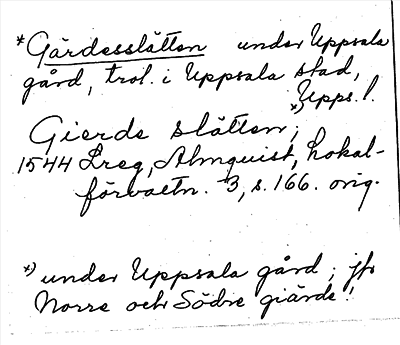 *Gärdesslätten under Uppsala
gård, trol. i Uppsala stad,
Upps. l.
Gierde slätten;
1544 Lreg, Almquist, Lokal-
förvaltn. 3, s. 166. orig.
*) under Uppsala gård; jfr
Norre och Södre giärde!